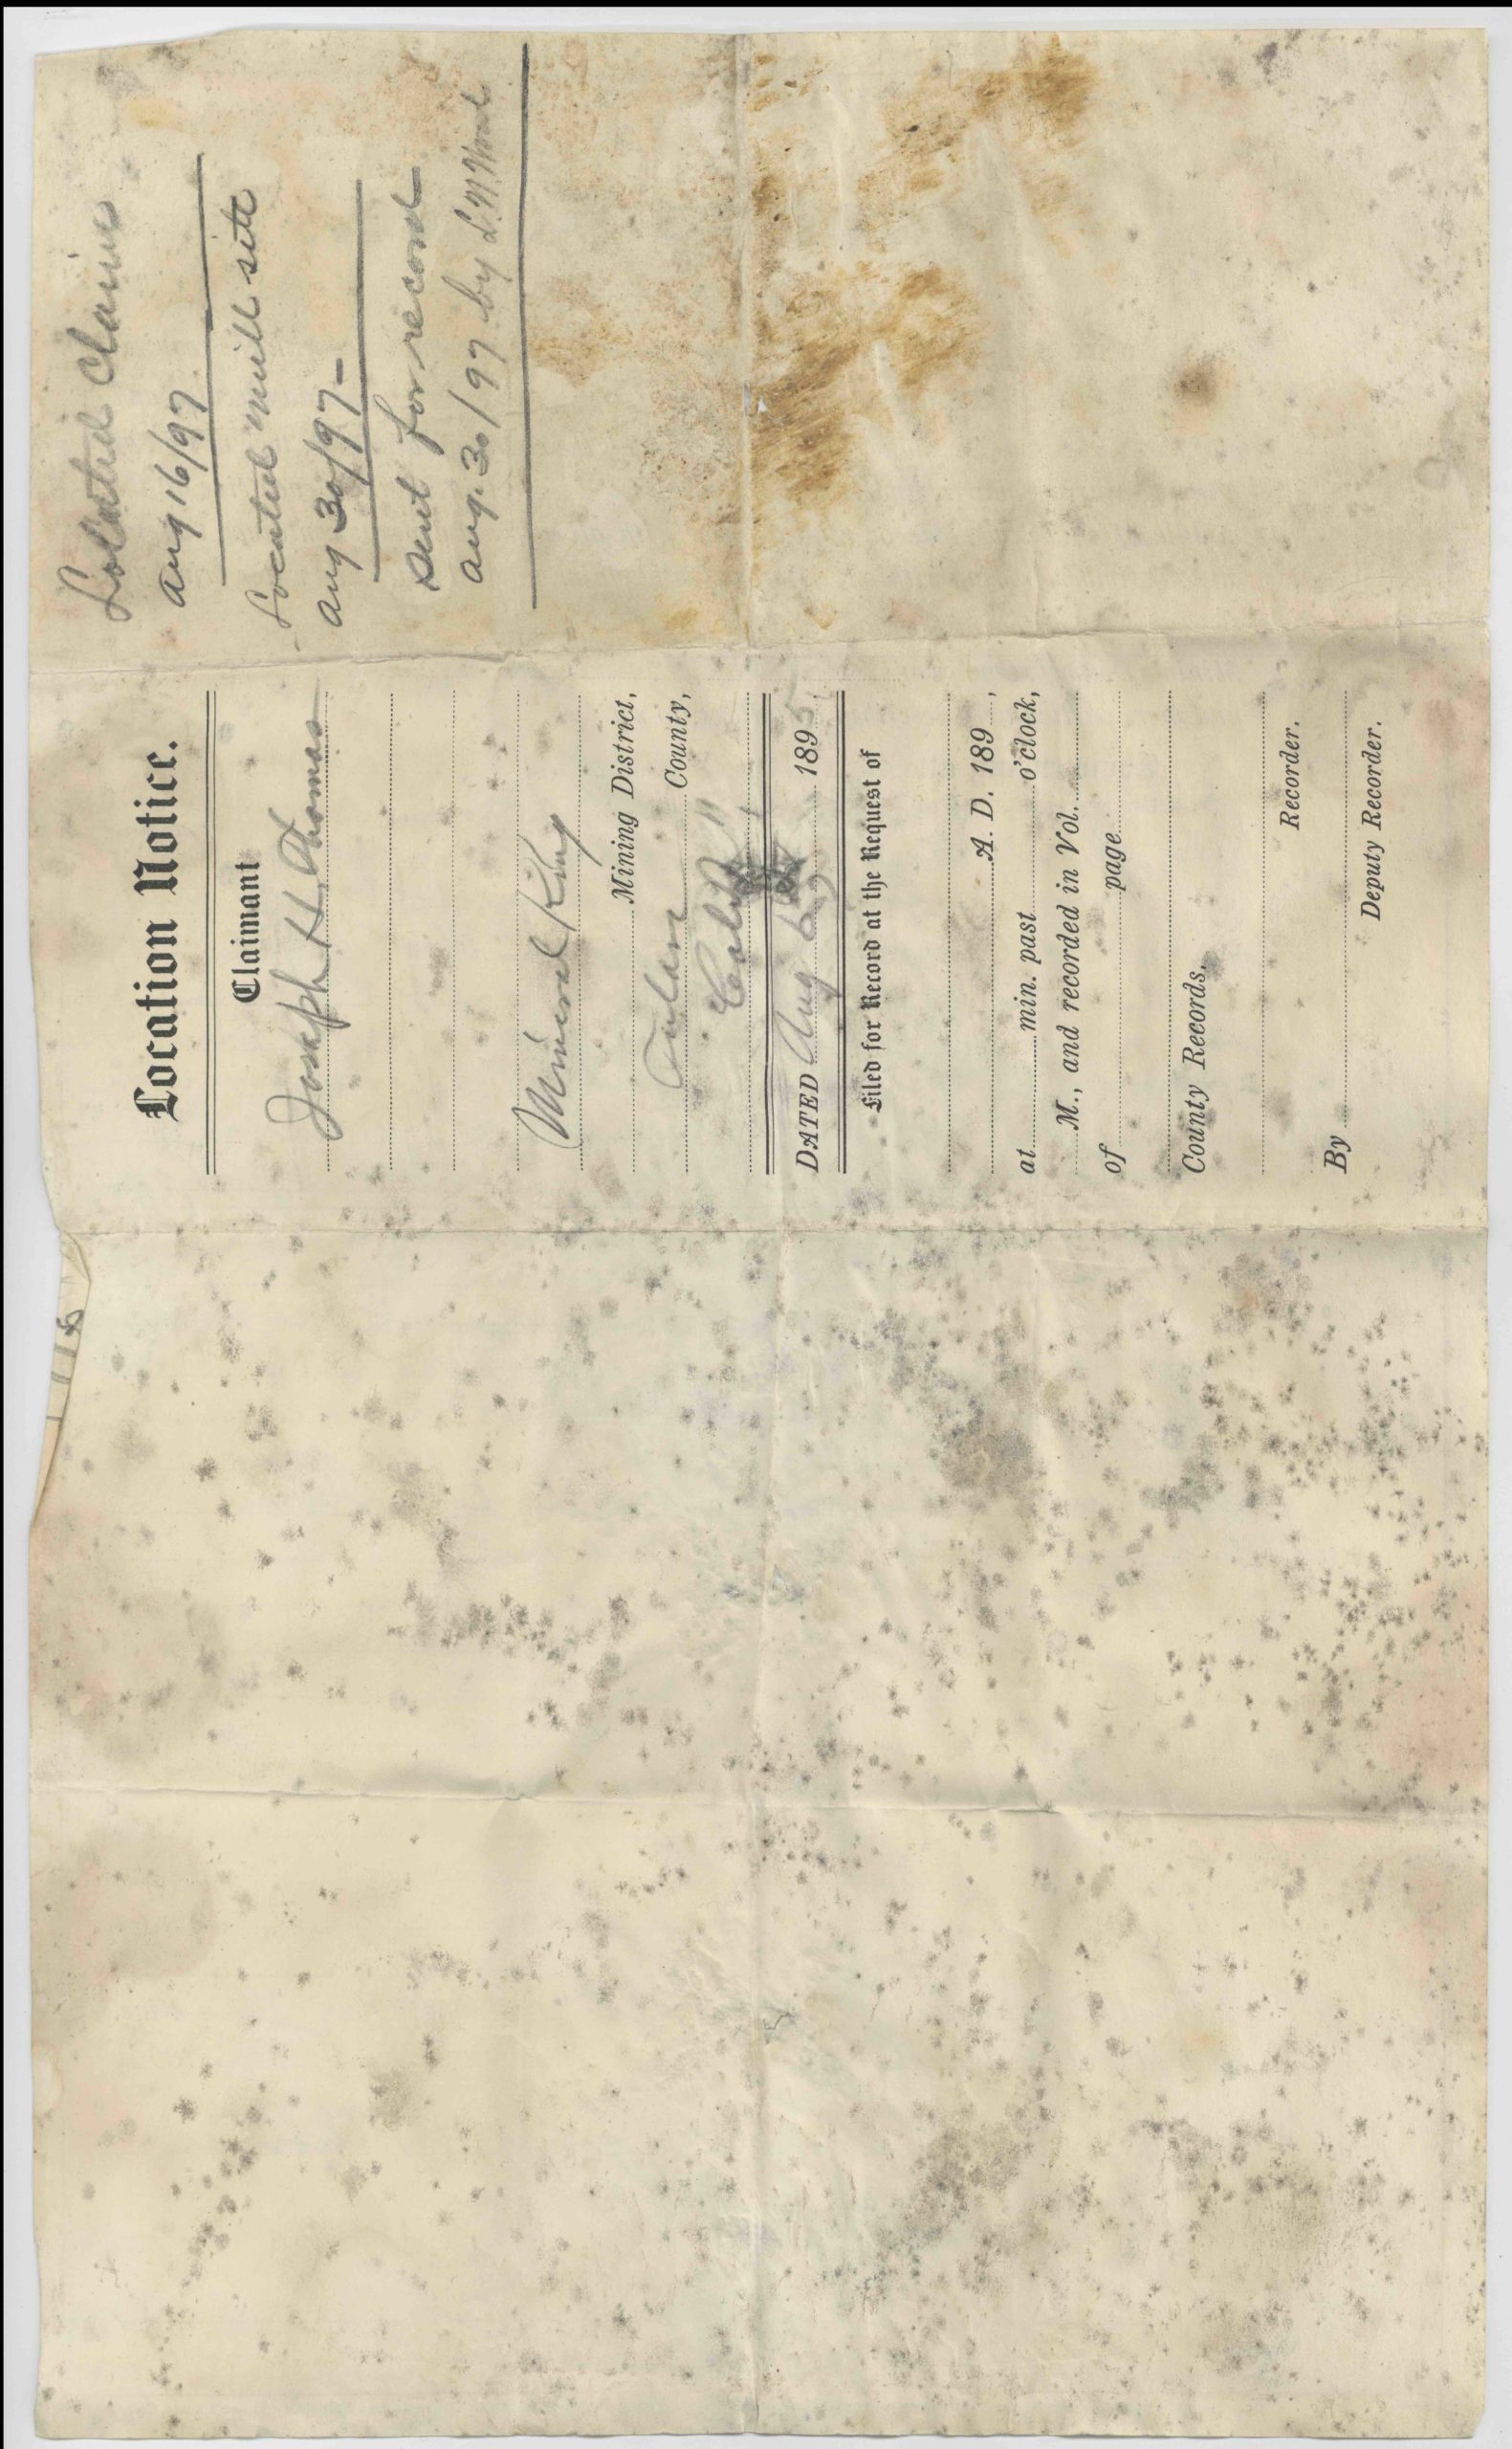 Located Claims
Aug 16/97
Located mill site
Aug 30/97-
Sent for record
Aug. 30/97 by
Location Notice.
Claimant
Joseph H. Thomas
Mineral King
Mining District,
Tulare County,
Calif
DATED Aug 189
Filed for Record at the Request of
A. D. 189 ,
at min. past o'clock,
M., and recorded in Vol.
of page
County Records.
Recorder.
By
Deputy Recorder.